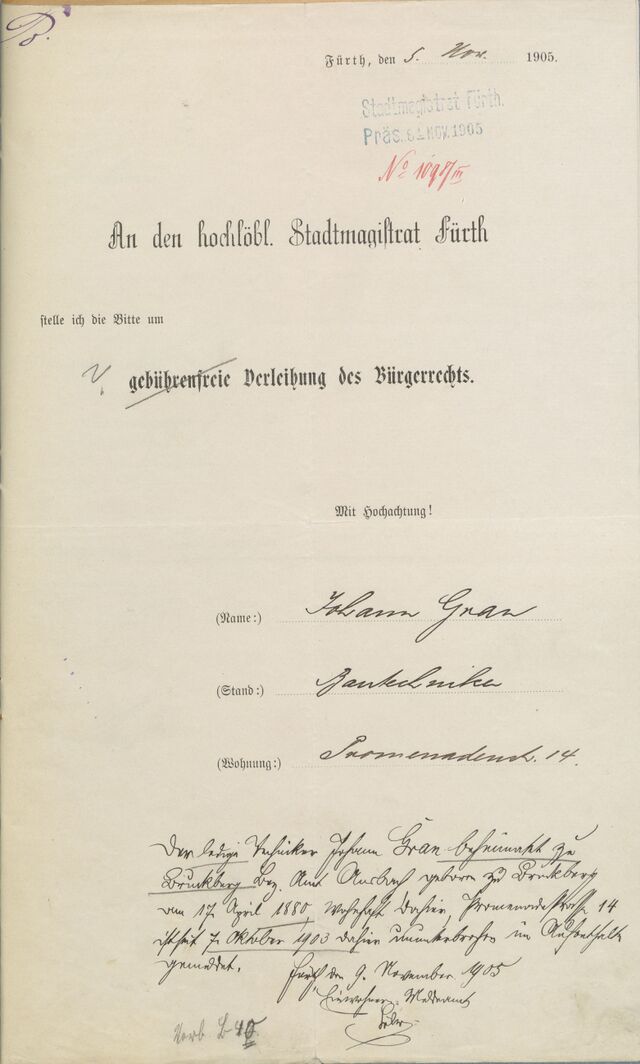 B.
Fürth, den 5. Nov. 1905.
Stadtmagistrat Fürth.
Präs. 6. NOV. 1905
No
An den hochlöbl. Stadtmagistrat Fürth
stelle ich die Bitte um
gebührenfreie Verleihung des Bürgerrechts.
Mit Hochachtung!
(Name:) Johann Grau
(Stand:) Bautechniker
(Wohnung:) Promenadenstr. 14.
Der ledige Techniker Johann Grau beheimatet zu
Bruckberg Bez. Amt Ansbach geboren zu Bruckberg
am 17. April 1880, wohnhaft dahier, Promenadestraße 14
ist seit 7. Oktober 1903 dahier ununterbrochen im Aufenthalte
gemeldet. Fürth, den 9. November 1905
Einwohner-Meldeamt